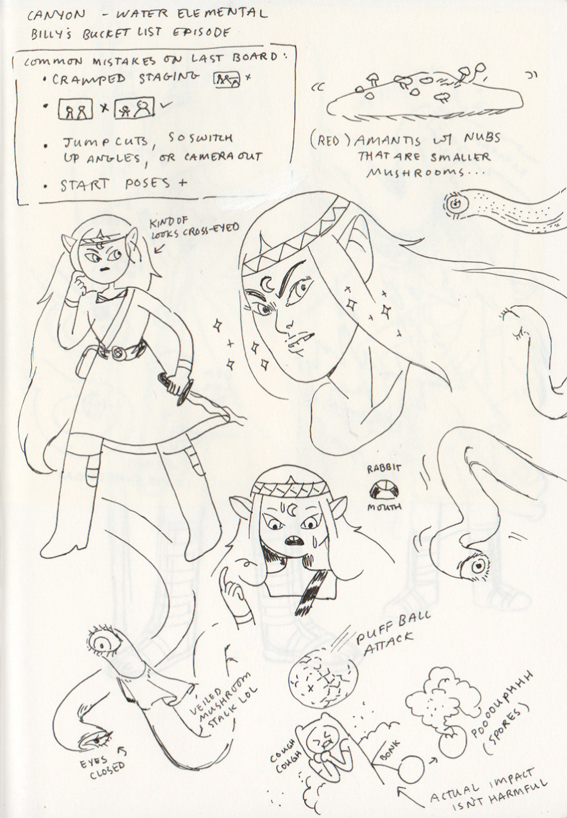 CANYON - WATER ELEMENTAL
BILLY'S BUCKET LIST EPISODE
COMMON MISTAKES ON LAST BOARD:
• CRAMPED STAGING x
• x ✓
• JUMP CUTS, SO SWITCH
UP ANGLES, OR CAMERA OUT
• START POSES +
(RED) AMANTIS W/ NUBS
THAT ARE SMALLER
MUSHROOMS...
KIND OF
LOOKS CROSS-EYED
RABBIT
MOUTH
PUFF BALL
ATTACK
VEILED
MUSHROOM
STALK LOL
EYES
CLOSED
COUGH
COUGH
BONK
POOOUPHHH
(SPORES)
ACTUAL IMPACT
ISN'T HARMFUL